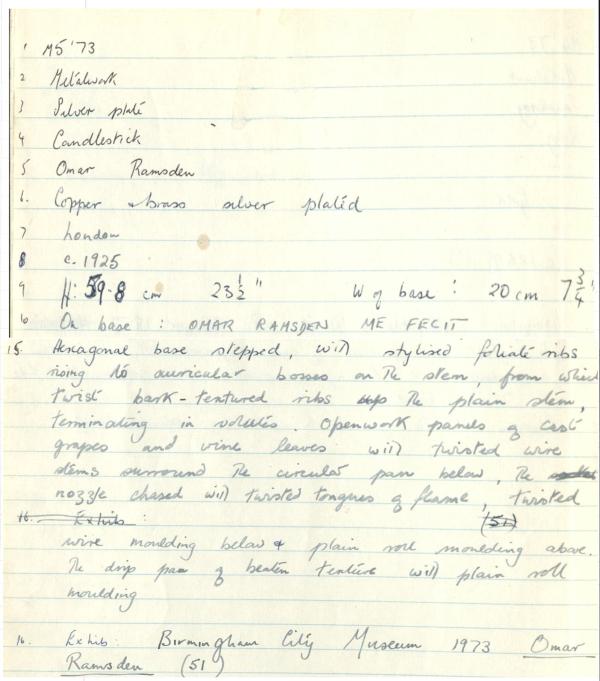 1 M5'73
2 Metalwork
3 Silver plate
4 Candlestick
5 Omar Ramsden
6. Copper & brass silver plated
7 London
8 c. 1925
9 H: 59.8 cm 23 1/2 " W of base : 20 cm 7 3/4 "
10 On base : OMAR RAMSDEN ME FECIT
15. Hexagonal base stepped, with stylised foliate ribs
rising to auricular bosses on the stem, from which
twist bark-textured ribs up the plain stem,
terminating in volutes. Openwork panels of cast
grapes and vine leaves with twisted wire
stems surround the circular pan below, the
nozzle chased with twisted tongues of flame, twisted
16. Exhib : (51)
wire moulding below & plain roll moulding above.
The drip pan of beaten texture with plain roll
moulding
16. Exhib: Birmingham City Museum 1973 Omar
Ramsden (51)